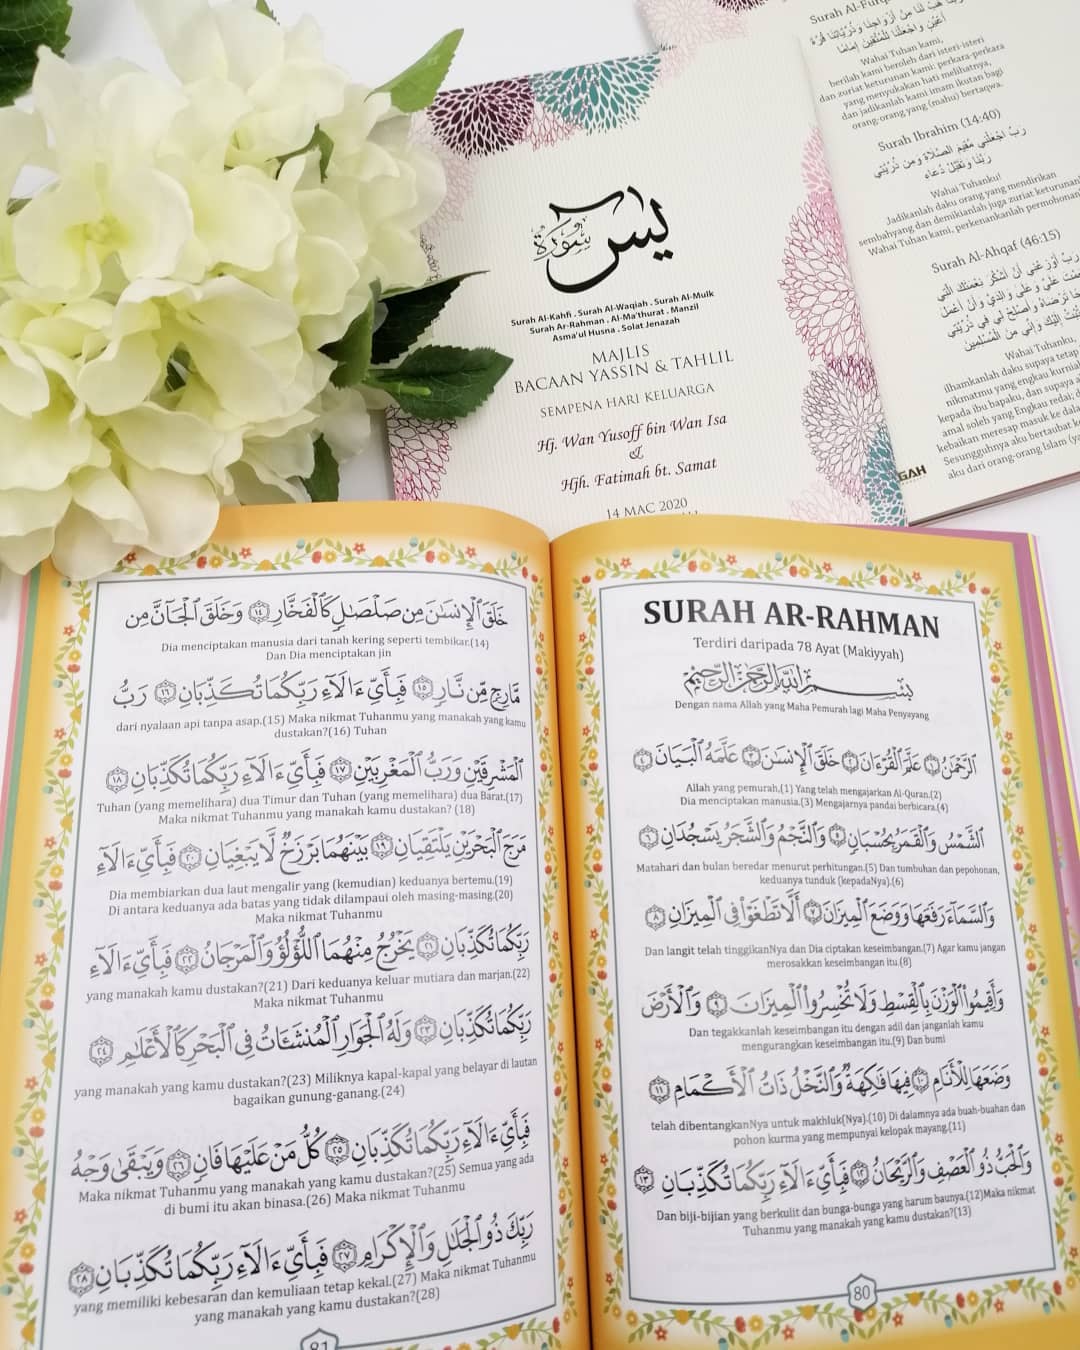 يس
سورة
Surah Al-Kahfi . Surah Al-Waqiah . Surah Al-Mulk
Surah Ar-Rahman . Al-Ma'thurat . Manzil
Asma'ul Husna . Solat Jenazah
MAJLIS
BACAAN YASSIN & TAHLIL
SEMPENA HARI KELUARGA
Hj. Wan Yusoff bin Wan Isa
&
Hjh. Fatimah bt. Samat
14 MAC 2020
Surah Al-Furq
هب لنا من أزواجنا وذرياتنا قرة
أعين واجعلنا للمتقين إماما
Wahai Tuhan kami,
berilah kami beroleh dari isteri-isteri
dan zuriat keturunan kami: perkara-perkara
yang menyukakan hati melihatnya,
dan jadikanlah kami imam ikutan bagi
orang-orang yang (mahu) bertaqwa.
Surah Ibrahim (14:40)
رب اجعلني مقيم الصلاة ومن ذريتي
ربنا وتقبل دعاء
Wahai Tuhanku!
Jadikanlah daku orang yang mendirikan
sembahyang dan demikianlah juga zuriat keturunan
Wahai Tuhan kami, perkenankanlah permohonan
Surah Al-Ahqaf (46:15)
رب أوزعني أن أشكر نعمتك التي
علي وعلى والدي وأن أعمل
ترضاه وأصلح لي في ذريتي
إليك وإني من المسلمين
Wahai Tuhanku,
ilhamkanlah daku supaya tetap
nikmatmu yang engkau kurnia
kepada ibu bapaku, dan supaya
amal soleh yang Engkau redai,
kebaikan meresap masuk ke dala
Sesungguhnya aku bertaubat ke
aku dari orang-orang Islam (ya
GAH
SURAH AR-RAHMAN
Terdiri daripada 78 Ayat (Makiyyah)
بسم الله الرحمن الرحيم
Dengan nama Allah yang Maha Pemurah lagi Maha Penyayang
ٱلرَّحْمَٰنُ ١ عَلَّمَ ٱلْقُرْءَانَ ٢ خَلَقَ ٱلْإِنسَٰنَ ٣ عَلَّمَهُ ٱلْبَيَانَ ٤
Allah yang pemurah.(1) Yang telah mengajarkan Al-Quran.(2)
Dia menciptakan manusia.(3) Mengajarnya pandai berbicara.(4)
ٱلشَّمْسُ وَٱلْقَمَرُ بِحُسْبَانٍ ٥ وَٱلنَّجْمُ وَٱلشَّجَرُ يَسْجُدَانِ ٦
Matahari dan bulan beredar menurut perhitungan.(5) Dan tumbuhan dan pepohonan,
keduanya tunduk (kepadaNya).(6)
وَٱلسَّمَآءَ رَفَعَهَا وَوَضَعَ ٱلْمِيزَانَ ٧ أَلَّا تَطْغَوْا۟ فِى ٱلْمِيزَانِ ٨
Dan langit telah tinggikanNya dan Dia ciptakan keseimbangan.(7) Agar kamu jangan
merosakkan keseimbangan itu.(8)
وَأَقِيمُوا۟ ٱلْوَزْنَ بِٱلْقِسْطِ وَلَا تُخْسِرُوا۟ ٱلْمِيزَانَ ٩ وَٱلْأَرْضَ
Dan tegakkanlah keseimbangan itu dengan adil dan janganlah kamu
mengurangkan keseimbangan itu.(9) Dan bumi
وَضَعَهَا لِلْأَنَامِ ١٠ فِيهَا فَٰكِهَةٌ وَٱلنَّخْلُ ذَاتُ ٱلْأَكْمَامِ ١١
telah dibentangkanNya untuk makhluk(Nya).(10) Di dalamnya ada buah-buahan dan
pohon kurma yang mempunyai kelopak mayang.(11)
وَٱلْحَبُّ ذُو ٱلْعَصْفِ وَٱلرَّيْحَانُ ١٢ فَبِأَىِّ ءَالَآءِ رَبِّكُمَا تُكَذِّبَانِ ١٣
Dan biji-bijian yang berkulit dan bunga-bunga yang harum baunya.(12)Maka nikmat
Tuhanmu yang manakah yang kamu dustakan?(13)
80
خَلَقَ ٱلْإِنسَٰنَ مِن صَلْصَٰلٍ كَٱلْفَخَّارِ ١٤ وَخَلَقَ ٱلْجَآنَّ مِن
Dia menciptakan manusia dari tanah kering seperti tembikar.(14)
Dan Dia menciptakan jin
مَّارِجٍ مِّن نَّارٍ ١٥ فَبِأَىِّ ءَالَآءِ رَبِّكُمَا تُكَذِّبَانِ ١٦ رَبُّ
dari nyalaan api tanpa asap.(15) Maka nikmat Tuhanmu yang manakah yang kamu
dustakan?(16) Tuhan
ٱلْمَشْرِقَيْنِ وَرَبُّ ٱلْمَغْرِبَيْنِ ١٧ فَبِأَىِّ ءَالَآءِ رَبِّكُمَا تُكَذِّبَانِ ١٨
Tuhan (yang memelihara) dua Timur dan Tuhan (yang memelihara) dua Barat.(17)
Maka nikmat Tuhanmu yang manakah kamu dustakan? (18)
مَرَجَ ٱلْبَحْرَيْنِ يَلْتَقِيَانِ ١٩ بَيْنَهُمَا بَرْزَخٌ لَّا يَبْغِيَانِ ٢٠ فَبِأَىِّ ءَالَآءِ
Dia membiarkan dua laut mengalir yang (kemudian) keduanya bertemu.(19)
Di antara keduanya ada batas yang tidak dilampaui oleh masing-masing.(20)
Maka nikmat Tuhanmu
رَبِّكُمَا تُكَذِّبَانِ ٢١ يَخْرُجُ مِنْهُمَا ٱللُّؤْلُؤُ وَٱلْمَرْجَانُ ٢٢ فَبِأَىِّ ءَالَآءِ
yang manakah kamu dustakan?(21) Dari keduanya keluar mutiara dan marjan.(22)
Maka nikmat Tuhanmu
رَبِّكُمَا تُكَذِّبَانِ ٢٣ وَلَهُ ٱلْجَوَارِ ٱلْمُنشَـَٔاتُ فِى ٱلْبَحْرِ كَٱلْأَعْلَٰمِ ٢٤
yang manakah yang kamu dustakan?(23) Miliknya kapal-kapal yang belayar di lautan
bagaikan gunung-ganang.(24)
فَبِأَىِّ ءَالَآءِ رَبِّكُمَا تُكَذِّبَانِ ٢٥ كُلُّ مَنْ عَلَيْهَا فَانٍ ٢٦ وَيَبْقَىٰ وَجْهُ
Maka nikmat Tuhanmu yang manakah yang kamu dustakan?(25) Semua yang ada
di bumi itu akan binasa.(26) Maka nikmat Tuhanmu
رَبِّكَ ذُو ٱلْجَلَٰلِ وَٱلْإِكْرَامِ ٢٧ فَبِأَىِّ ءَالَآءِ رَبِّكُمَا تُكَذِّبَانِ ٢٨
yang memiliki kebesaran dan kemuliaan tetap kekal.(27) Maka nikmat Tuhanmu
yang manakah yang kamu dustakan?(28)
81